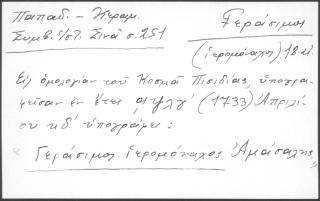 Παπαδ. - Κεραμ.
Συμβ. ἱστ. Σινᾶ σ. 251
Γεράσιμος
(ἱερομόναχος) 18 αἰ.
Εἰς ὁμολογίαν τοῦ Κοσμᾶ Πισιδίας, ὑπογρα-
φεῖσαν ἐν ἔτει αψλγ' (1733) Ἀπριλί-
ου κδ' ὑπογράφει:
Γεράσιμος ἱερομόναχος